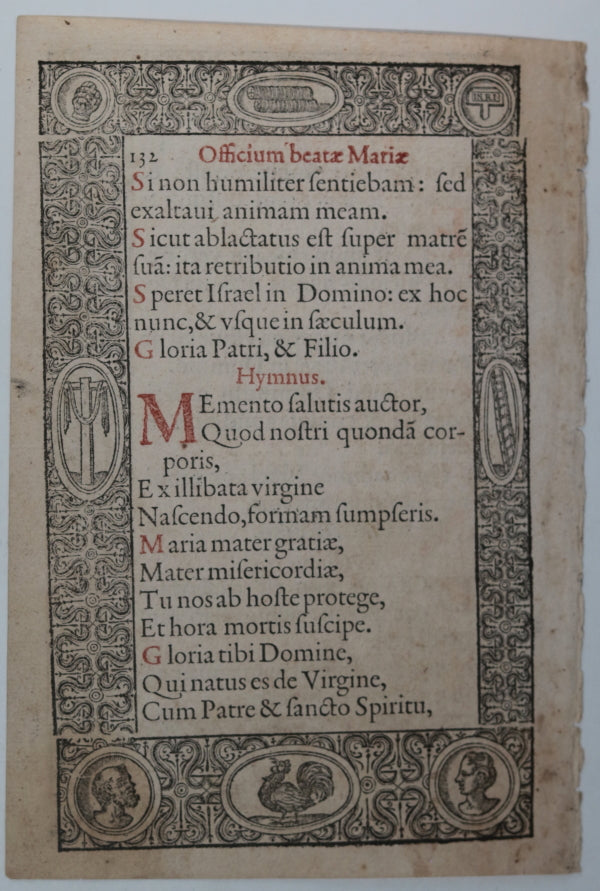 I.N.R.I
132 Officium beatæ Mariæ
Si non humiliter ſentiebam: ſed
exaltaui animam meam.
Sicut ablactatus eſt ſuper matrẽ
ſuã: ita retributio in anima mea.
Speret Iſrael in Domino: ex hoc
nunc,& vſque in ſæculum.
Gloria Patri, & Filio.
Hymnus.
MEmento ſalutis auctor,
Quod noſtri quondã cor-
poris,
Ex illibata virgine
Naſcendo,formam ſumpſeris.
Maria mater gratiæ,
Mater miſericordiæ,
Tu nos ab hoſte protege,
Et hora mortis ſuſcipe.
Gloria tibi Domine,
Qui natus es de Virgine,
Cum Patre & ſancto Spiritu,